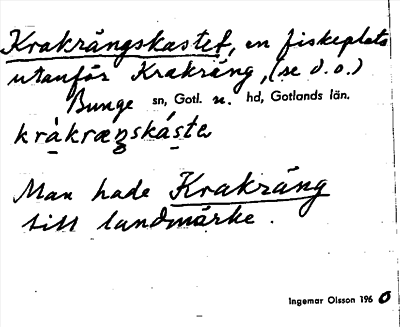 Krakrängskastet, en fiskeplats
utanför Krakräng, (se d.o.)
Bunge sn, Gotl. n. hd, Gotlands län.
kràkræŋskáste
Man hade Krakräng
till landmärke.
Ingemar Olsson 1960